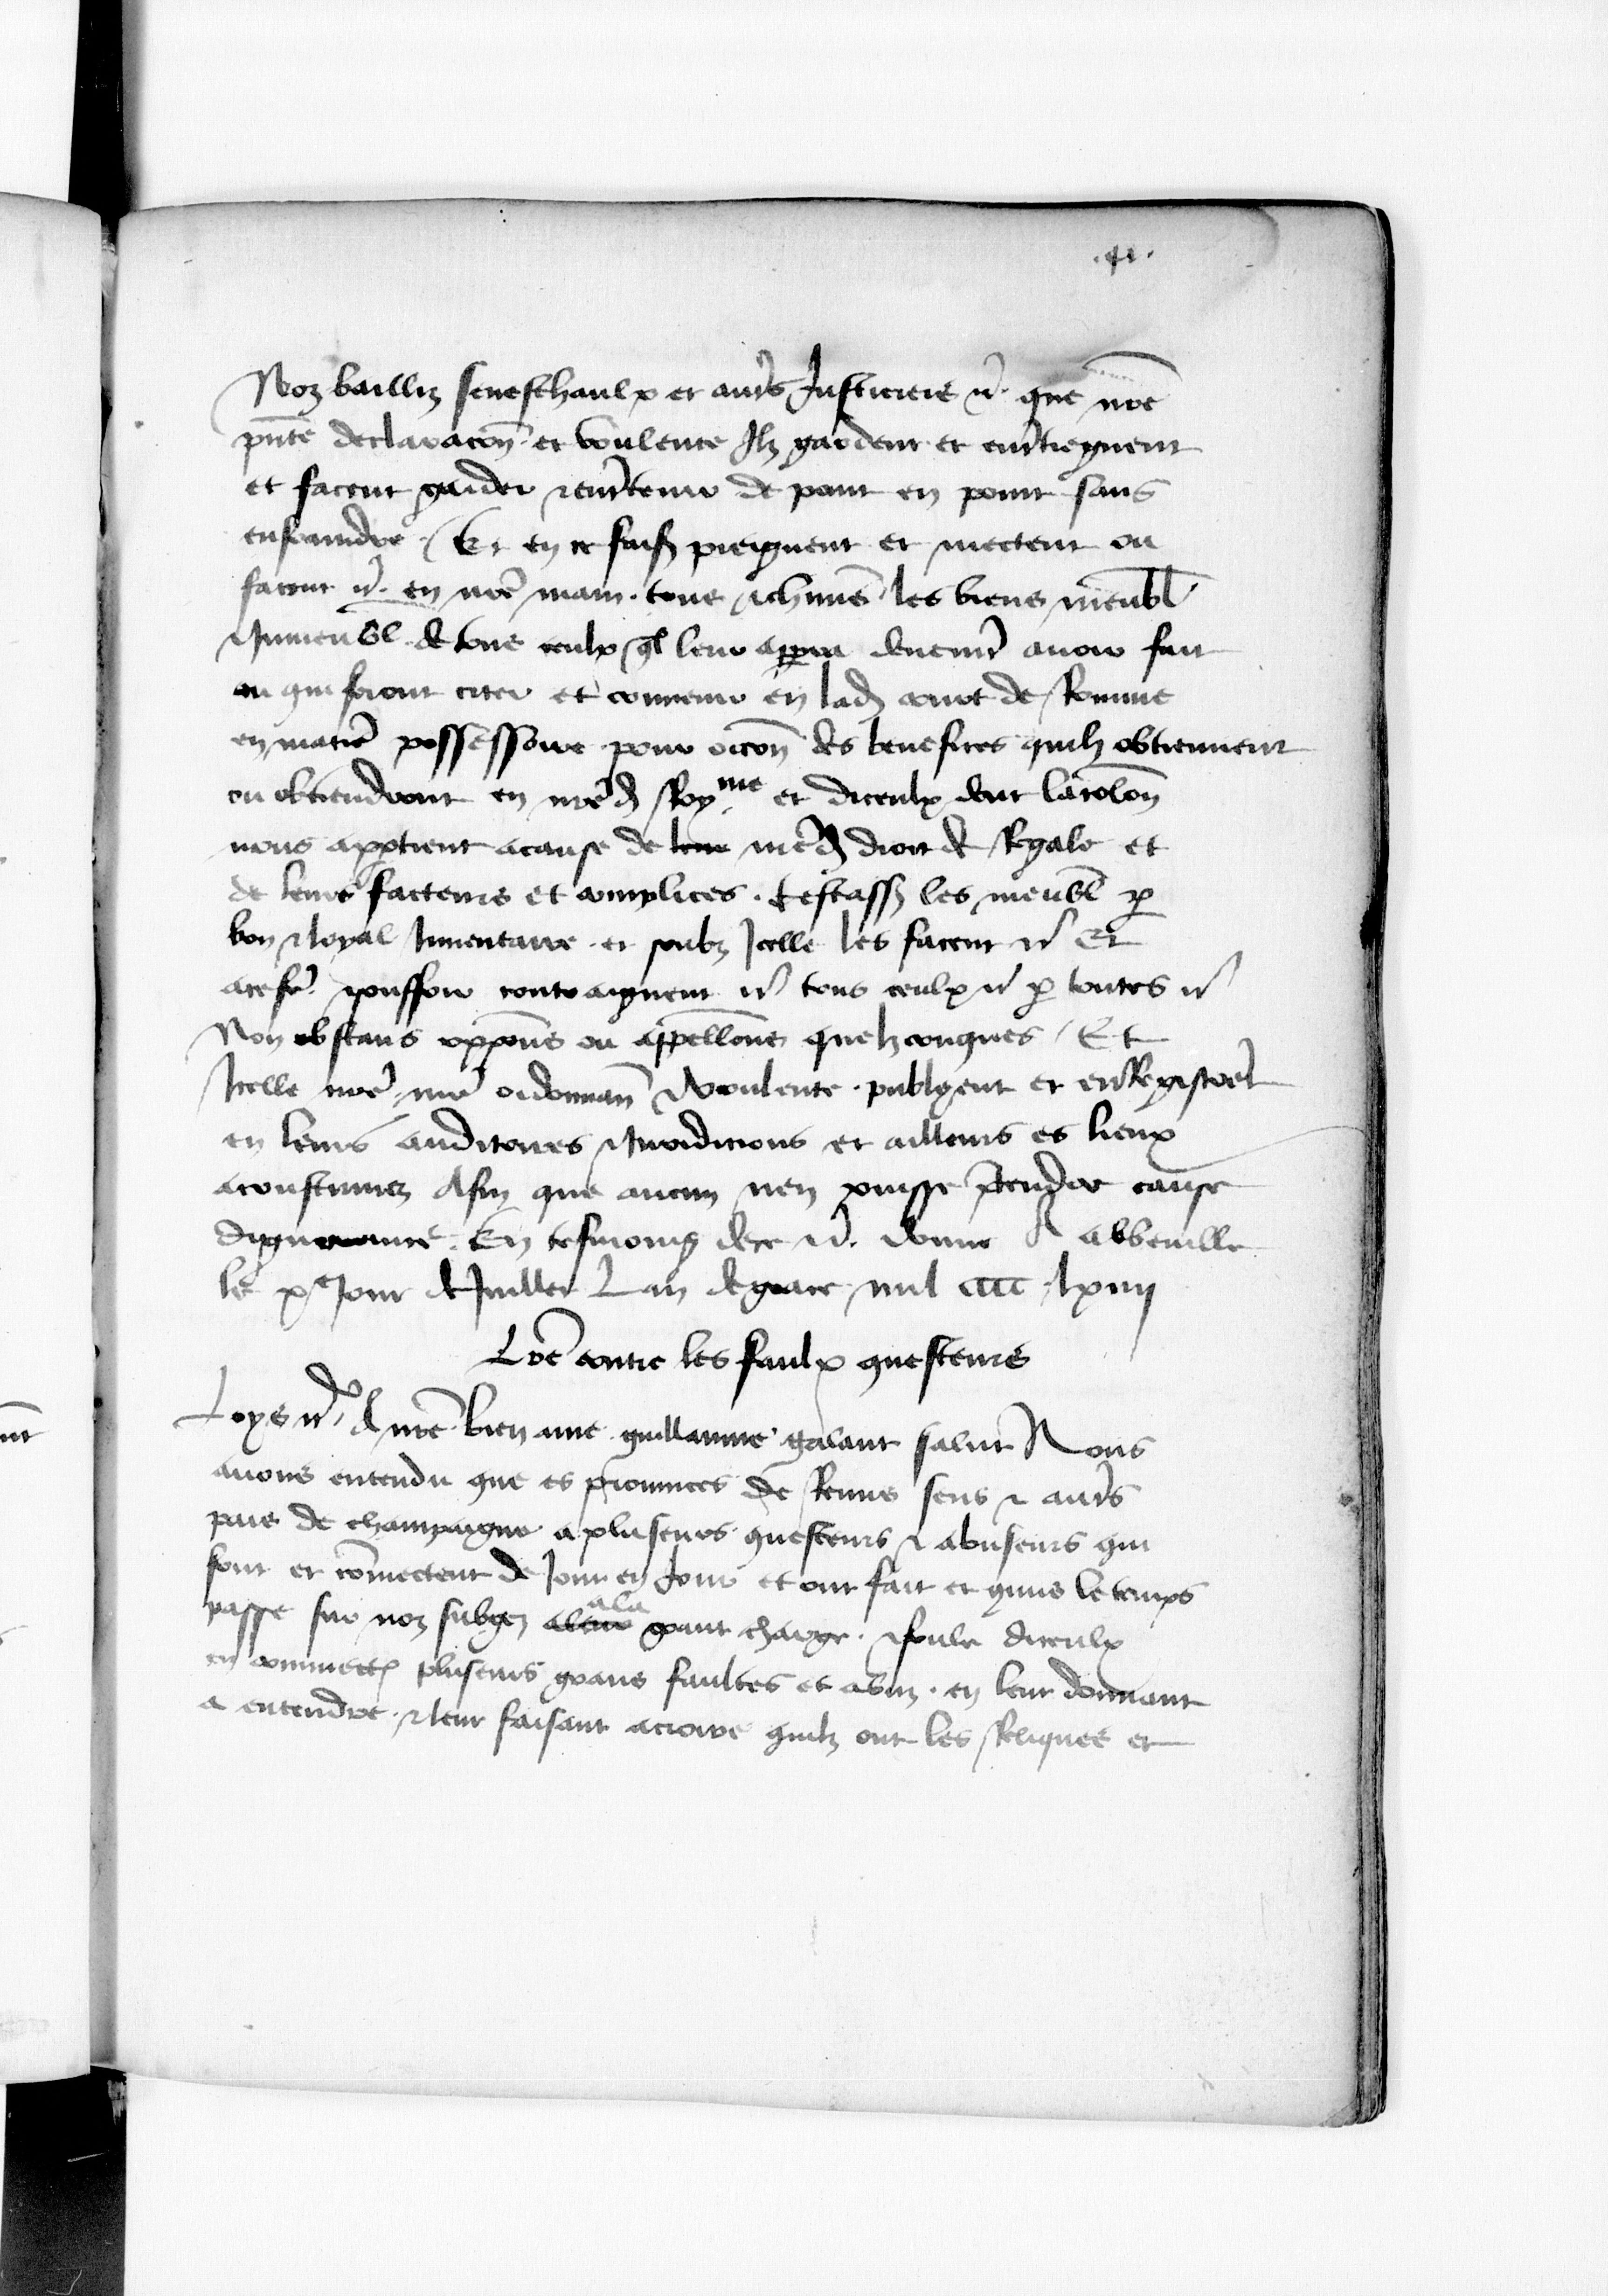 Noz bailliz seneschaulx et autrs Justiciers etc. que nre
pnte declaracon et voulente Ilz gardent et entretiegnent
et facent garder et entretenir de point en point sans
enfraindre. Et en ce faist preignent et mectent ou
facent etc. en nre main tous et chuns les biens meubl
Immeubl de tous ceulx qlz leur apperra deuement avoir fait
ou qui feront citer et convenir en lad court de Romme
en matiere possessoire pour occon des benefices quilz obtiennent
ou obtiendront en nred Roy.me et diceulx dont la colon
nous appartient acause de nred droit de Regale et
de leurs facteurs et complices. Cestass les meubl par
bon et loyal Inventaire et soubz Icelle les facent etc Et
ace fe. et souffrir contraignent etc tous ceulx etc par toutes etc
Non obstans opposns ou appellons quelzconques Et
Icelle nre ordonnan et voulente publyent et enregistrent
en leurs auditoires Jurdicions et ailleurs es lieux
acoustumez Afin que aucun nen puisse ptendre cause
dignorance. En tesmoing dece etc. donne A abbeville
le xe Jour de Juillet Lan de grace mil cccc lxiiij
Lre contre les faulx questeurs
Loys etc A nre bien ame guillaume galant salut Nous
avons entendu que es provinces de Reims sens et autrs
pais de champaigne a pluseurs questeurs et abuseurs qui
font et comectent de Jour en Jour et ont fait et comis le temps
passe sur noz subgez ala grant charge et foule diceulx
en commectt pluseurs grans faultes et abuz. en leur donnant
a entendre et leur faisant acroire quilz ont les Reliques et